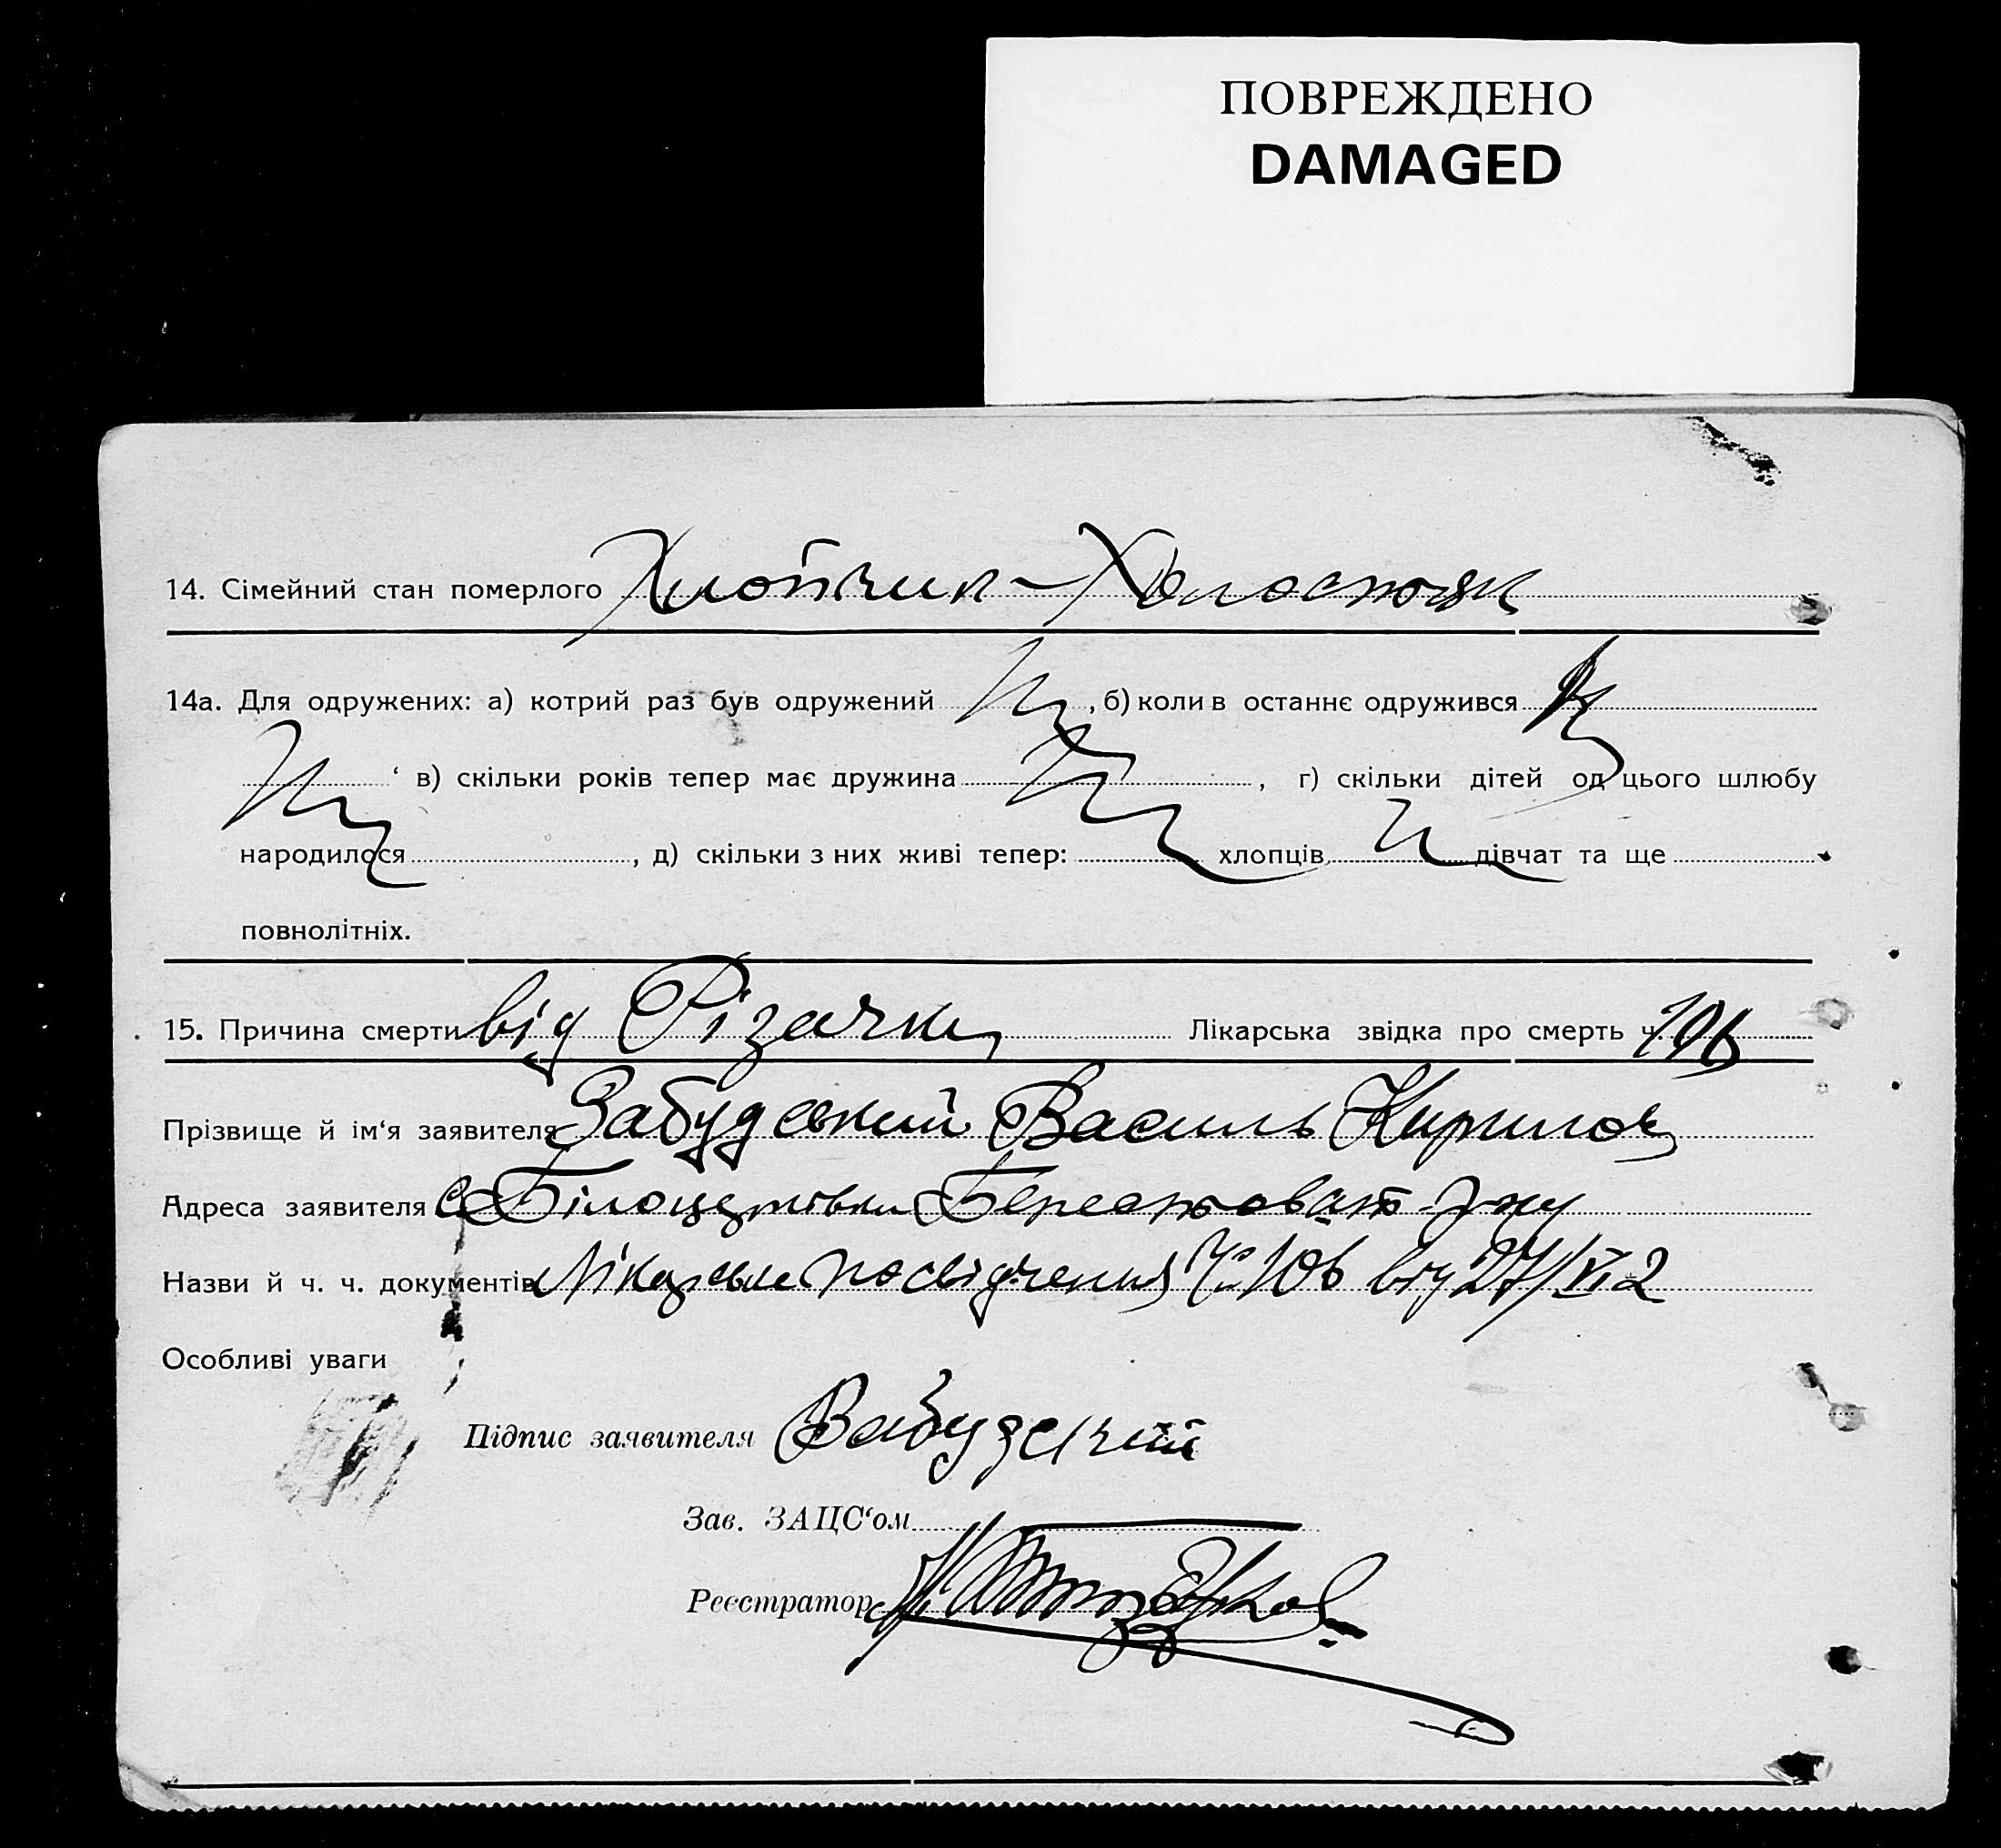 ПОВРЕЖДЕНО
DAMAGED
14. Сімейний стан померлого Хлопчик - Холостяк
14а. Для одружених: а) котрий раз був одружений , б) коли в останнє одружився
‘ в) скільки років тепер має дружина , г) скільки дітей од цього шлюбу
народилося , д) скільки з них живі тепер: хлопців дівчат та ще
повнолітніх.
15. Причина смерти від Різачки Лікарська звідка про смерть ч. 106
Прізвище й ім‘я заявителя Забудський Василь Кирилов
Адреса заявителя с Білоцерківка
Назви й ч. ч. документів Лікарське посвідчення № 106 від 27/VI 2
Особливі уваги
Підпис заявителя Забудский
Зав. ЗАЦС‘ом
Реєстратор